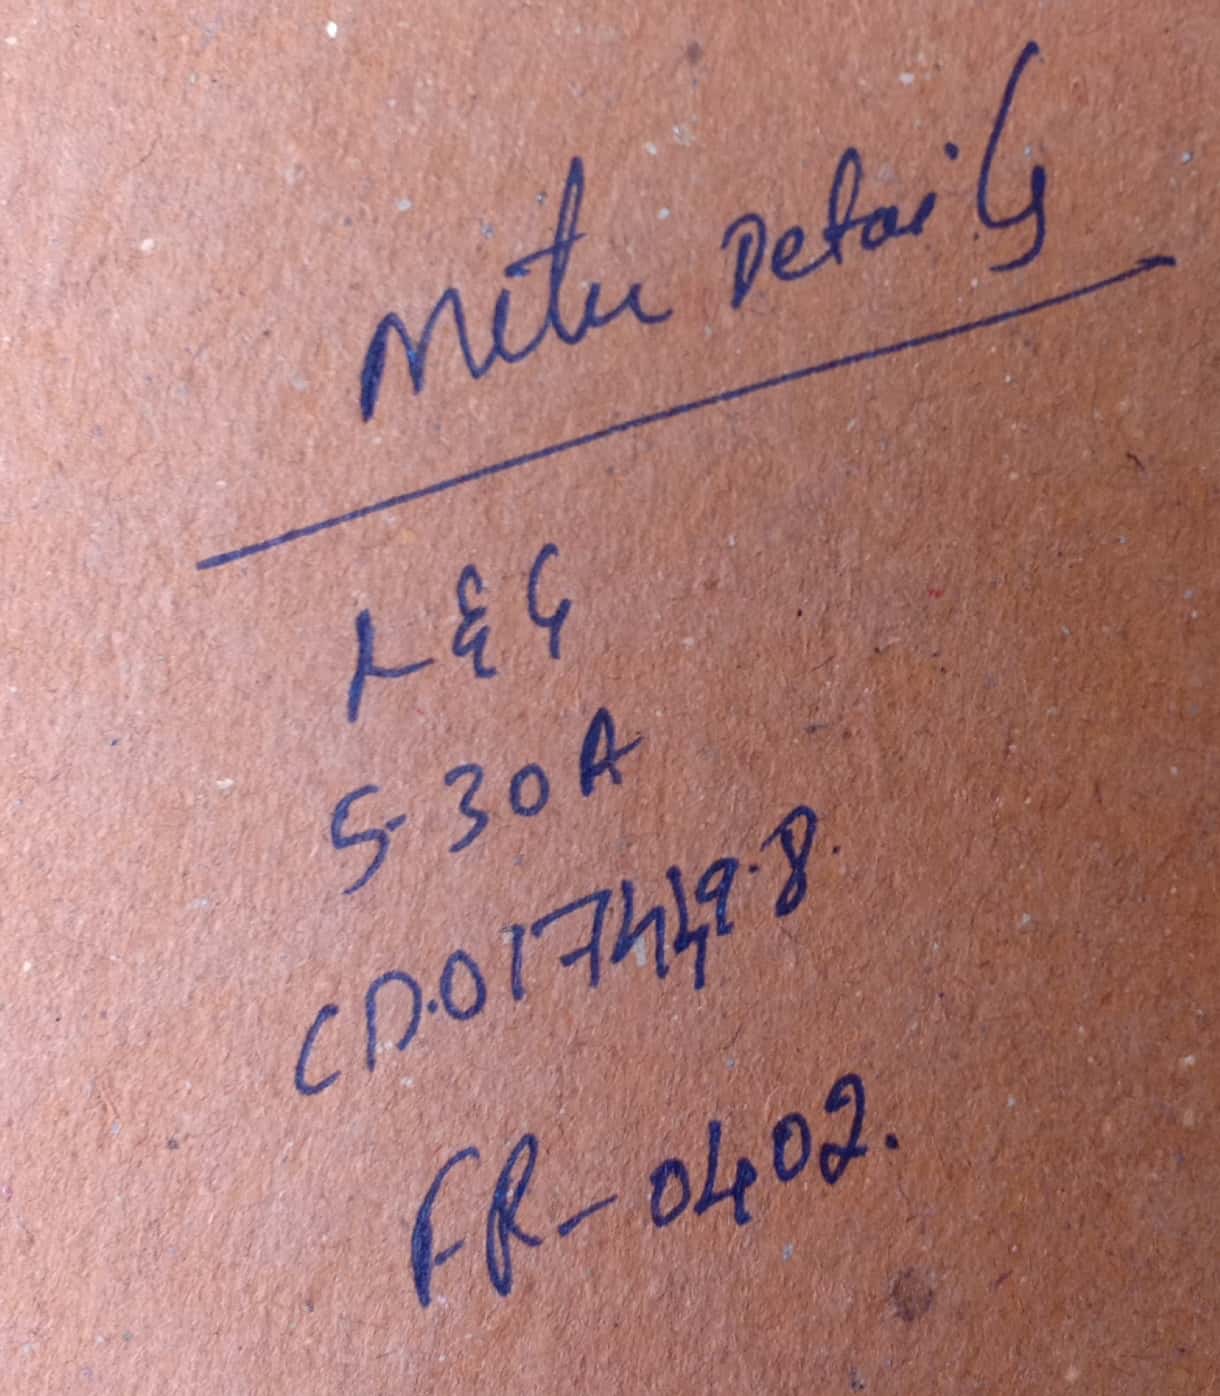 Meter Details
L&G
5-30A
CD.017449.8.
FR-0402.